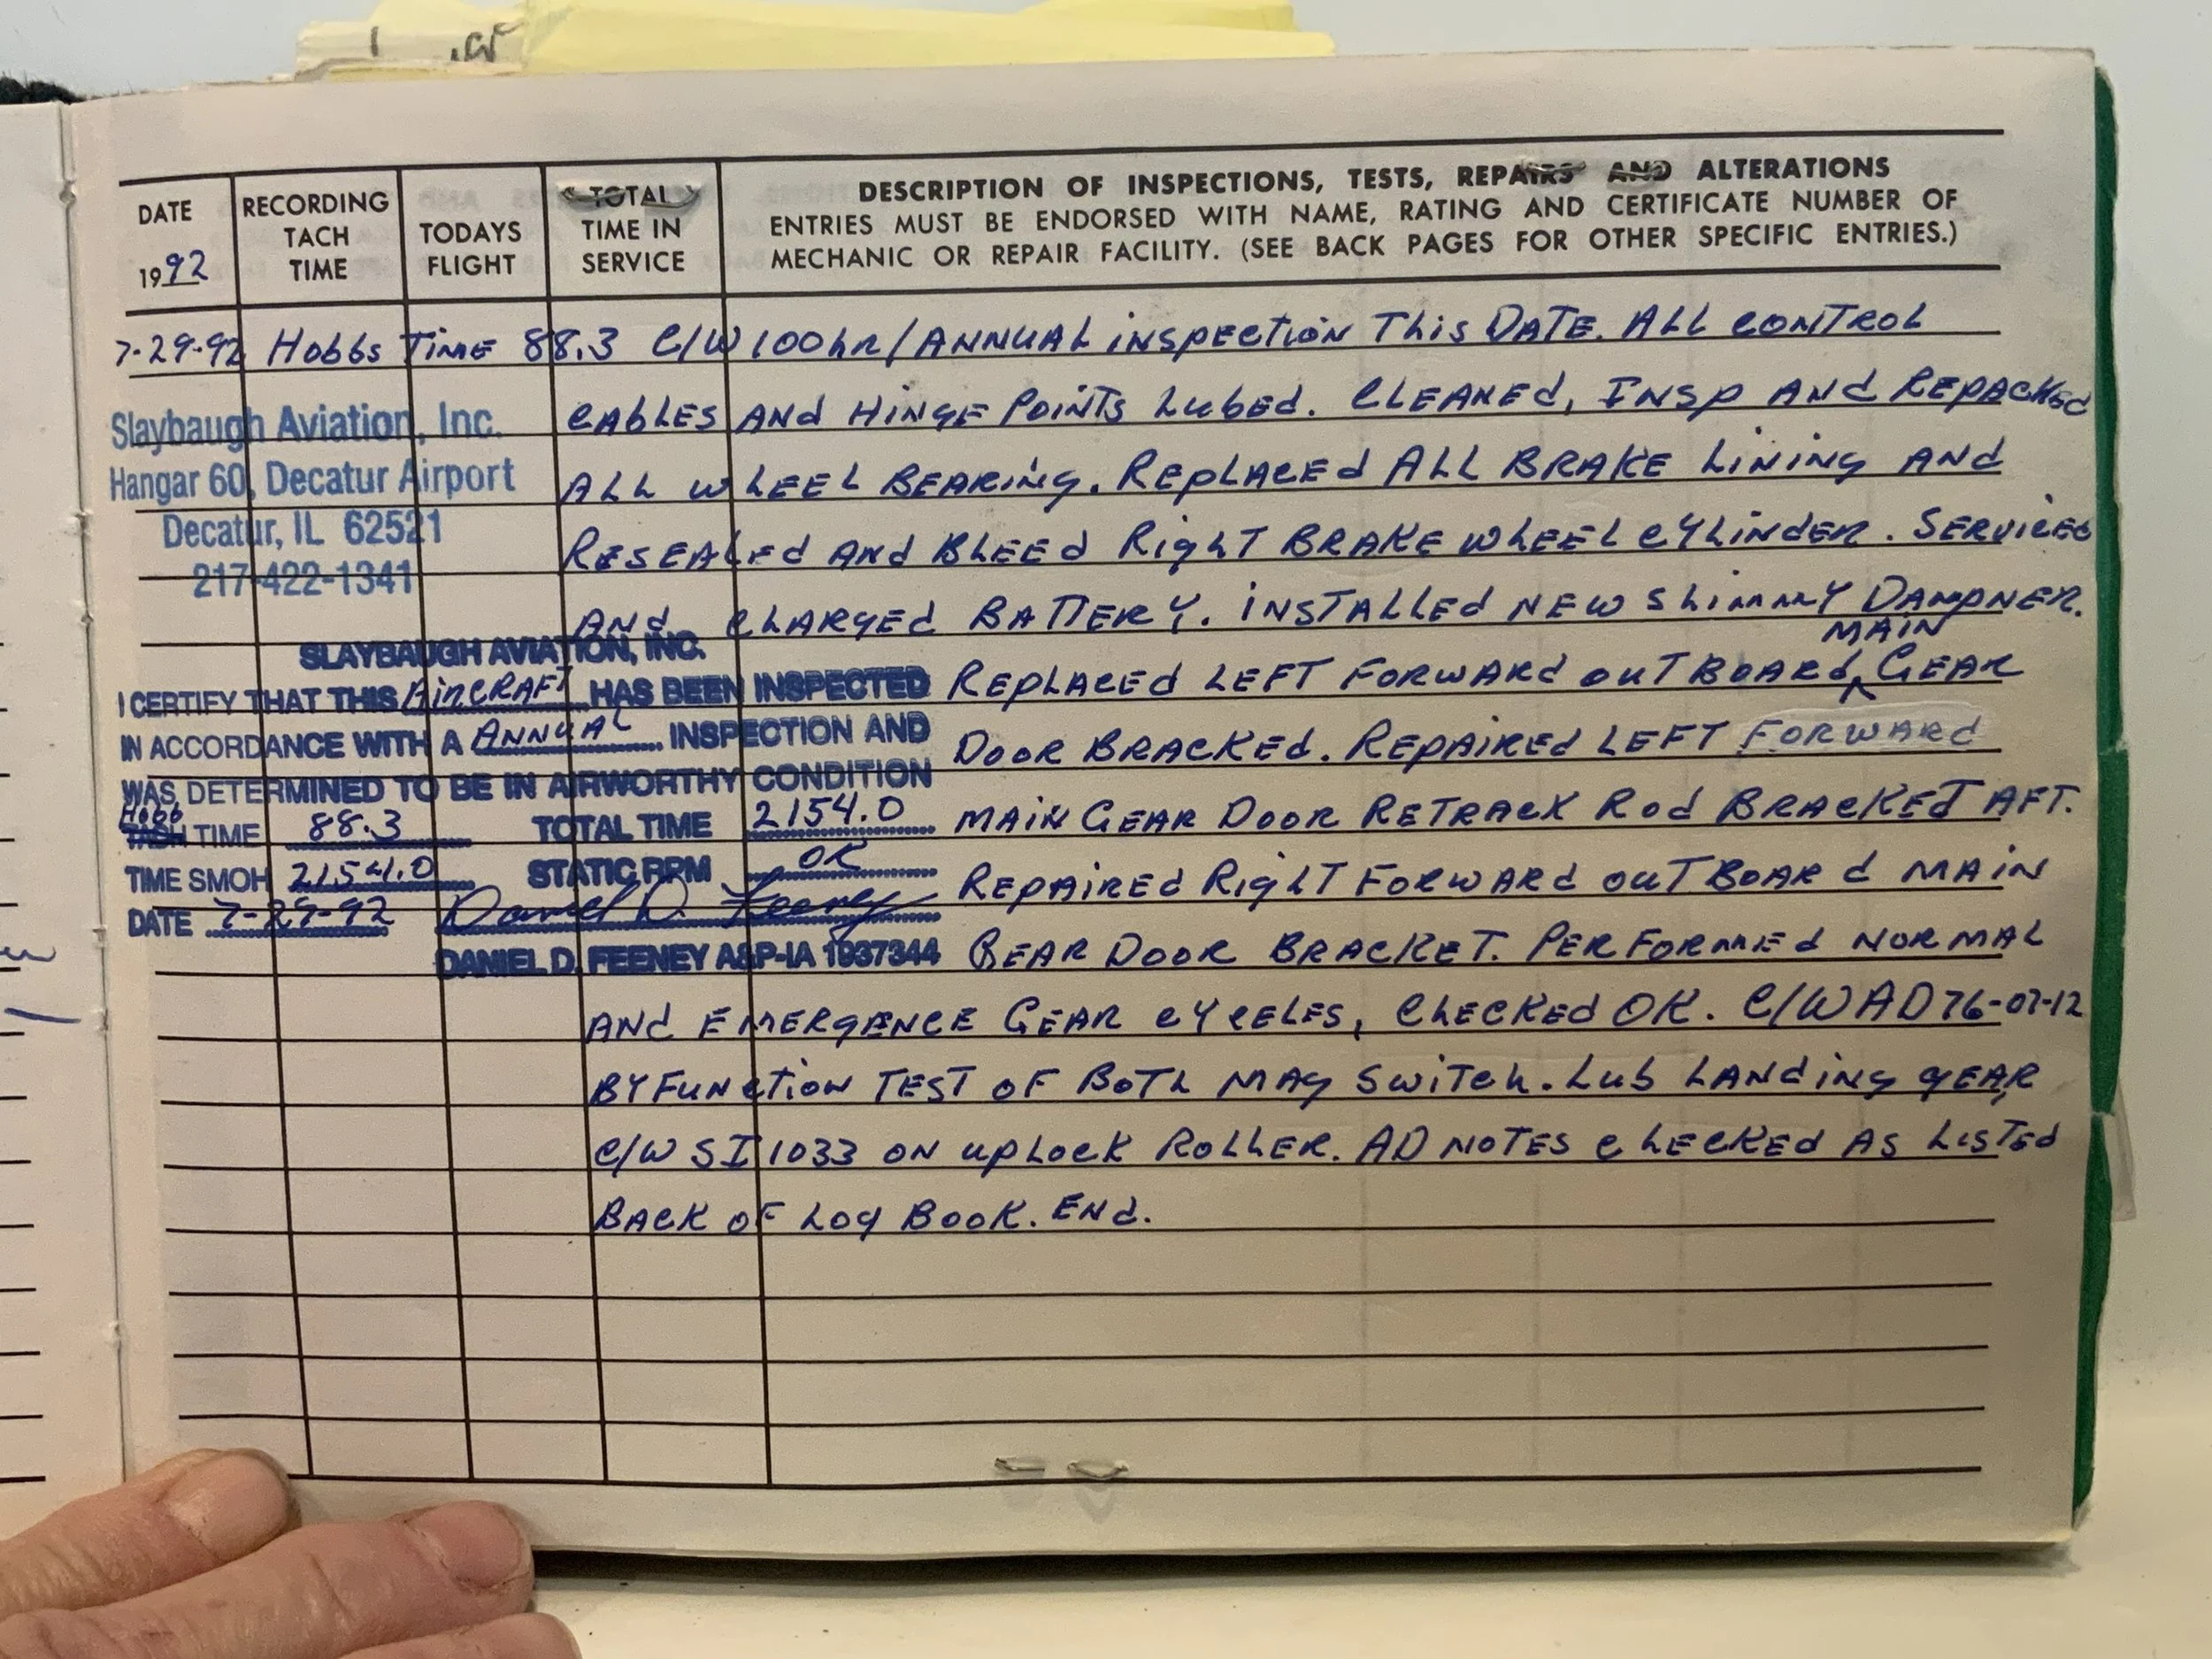 DATE
1992
RECORDING
TACH
TIME
TODAYS
FLIGHT
TOTAL
TIME IN
SERVICE
DESCRIPTION OF INSPECTIONS, TESTS, REPAIRS AND ALTERATIONS
ENTRIES MUST BE ENDORSED WITH NAME, RATING AND CERTIFICATE NUMBER OF
MECHANIC OR REPAIR FACILITY. (SEE BACK PAGES FOR OTHER SPECIFIC ENTRIES.)
7-29-92 Hobbs Time 88.3 C/W 100hr/ANNUAL inspection This DATE. ALL CONTROL
CABLES AND HINGE POINTS LUBED. CLEANED, INSP AND REPACKED
ALL WHEEL BEARING. REPLACED ALL BRAKE LINING AND
RESEALED AND BLEED RIGHT BRAKE WHEEL CYLINDER. SERVICED
AND CHARGED BATTERY. INSTALLED NEW SHIMMY DAMPNER.
Slaybaugh Aviation, Inc.
Hangar 60, Decatur Airport
Decatur, IL 62521
217-422-1341
SLAYBAUGH AVIATION, INC.
I CERTIFY THAT THIS AIRCRAFT HAS BEEN INSPECTED
IN ACCORDANCE WITH A ANNUAL INSPECTION AND
WAS DETERMINED TO BE IN AIRWORTHY CONDITION
Hobb
TACH TIME 88.3 TOTAL TIME 2154.0
TIME SMOH 2154.0 STATIC RPM OK
DATE 7-29-92 Daniel D. Feeney
DANIEL D. FEENEY A&P-IA 1937344
MAIN
REPLACED LEFT FORWARD OUTBOARD GEAR
DOOR BRACKED. REPAIRED LEFT FORWARD
MAIN GEAR DOOR RETRACK ROD BRACKET AFT.
REPAIRED RIGHT FORWARD OUTBOARD MAIN
GEAR DOOR BRACKET. PERFORMED NORMAL
AND EMERGENCE GEAR CYCELES, CHECKED OK. C/W AD 76-07-12
BY FUNCTION TEST OF BOTH MAG SWITCH. LUB LANDING GEAR,
C/W SI 1033 ON UPLOCK ROLLER. AD NOTES CHECKED AS LISTED
BACK OF LOG BOOK. END.